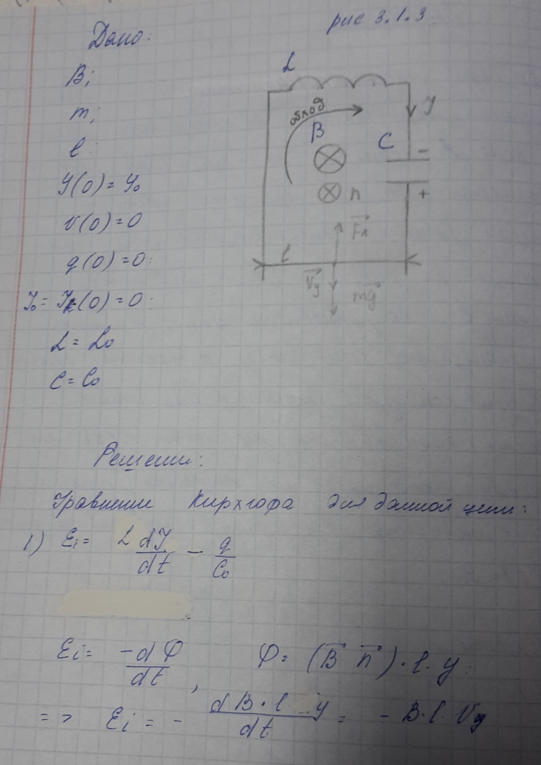 рис 3.1.3.
Дано:
B;
m;
l
y(0) = y₀
v(0) = 0
q(0) = 0
J₀ = J(0) = 0
L = L₀
C = C₀
L
обход
B
C
J
-
n
+
F⃗л
l
V⃗y
mg⃗
Решени:
Уравнении Кирхгофа для данной цепи:
1) Ei = L dJ/dt - q/C₀
Ei = -dФ/dt, Ф = (B⃗ n⃗) · l · y
=> Ei = - dB · l y/dt = - B · l · Vy